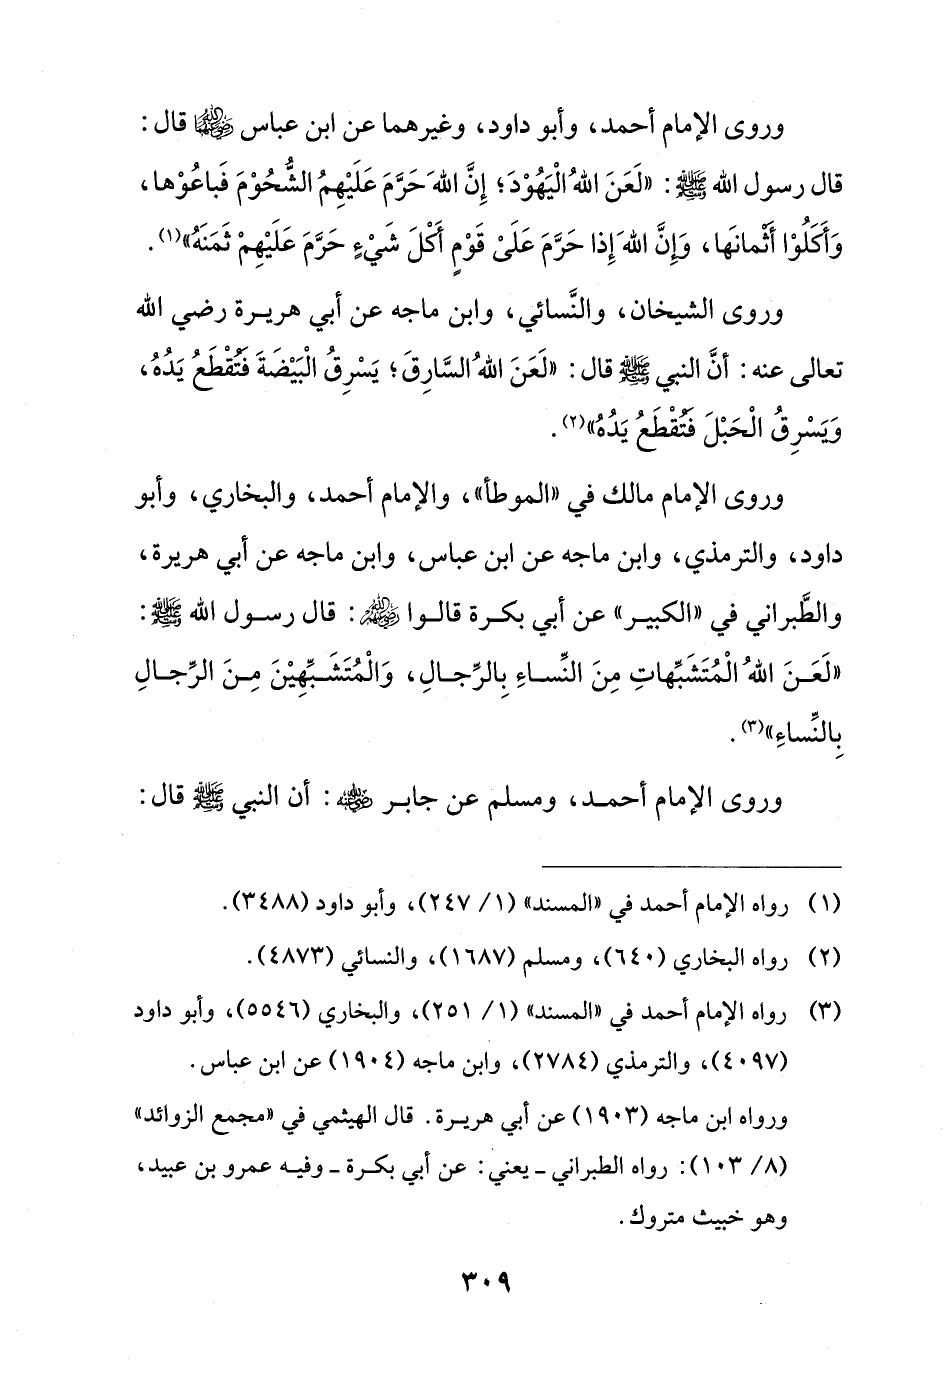 وروى الإمام أحمد، وأبو داود، وغيرهما عن ابن عباس رضي الله عنهما قال:
قال رسول الله ﷺ: «لَعَنَ اللهُ الْيَهُوْدَ؛ إِنَّ اللهَ حَرَّمَ عَلَيْهِمُ الشُّحُوْمَ فَباعُوْها،
وَأَكَلُوْا أَثْمانَها، وَإِنَّ اللهَ إِذا حَرَّمَ عَلَىْ قَوْمٍ أَكْلَ شَيْءٍ حَرَّمَ عَلَيْهِمْ ثَمَنَهُ»(١).
وروى الشيخان، والنَّسائي، وابن ماجه عن أبي هريرة رضي الله
تعالى عنه: أنَّ النبي ﷺ قال: «لَعَنَ اللهُ السَّارِقَ؛ يَسْرِقُ الْبَيْضَةَ فَتُقْطَعُ يَدُهُ،
وَيَسْرِقُ الْحَبْلَ فَتُقْطَعُ يَدُهُ»(٢).
وروى الإمام مالك في «الموطأ»، والإمام أحمد، والبخاري، وأبو
داود، والترمذي، وابن ماجه عن ابن عباس، وابن ماجه عن أبي هريرة،
والطَّبراني في «الكبير» عن أبي بكرة قالوا رضي الله عنهم: قال رسول الله ﷺ:
«لَعَنَ اللهُ الْمُتَشَبِّهاتِ مِنَ النِّساءِ بِالرِّجالِ، وَالْمُتَشَبِّهِيْنَ مِنَ الرِّجالِ
بِالنِّساءِ»(٣).
وروى الإمام أحمد، ومسلم عن جابر رضي الله عنه: أن النبي ﷺ قال:
(١) رواه الإمام أحمد في «المسند» (١/ ٢٤٧)، وأبو داود (٣٤٨٨).
(٢) رواه البخاري (٦٤٠)، ومسلم (١٦٨٧)، والنسائي (٤٨٧٣).
(٣) رواه الإمام أحمد في «المسند» (١/ ٢٥١)، والبخاري (٥٥٤٦)، وأبو داود
(٤٠٩٧)، والترمذي (٢٧٨٤)، وابن ماجه (١٩٠٤) عن ابن عباس.
ورواه ابن ماجه (١٩٠٣) عن أبي هريرة. قال الهيثمي في «مجمع الزوائد»
(٨/ ١٠٣): رواه الطبراني ـ يعني: عن أبي بكرة ـ وفيه عمرو بن عبيد،
وهو خبيث متروك.
٣٠٩